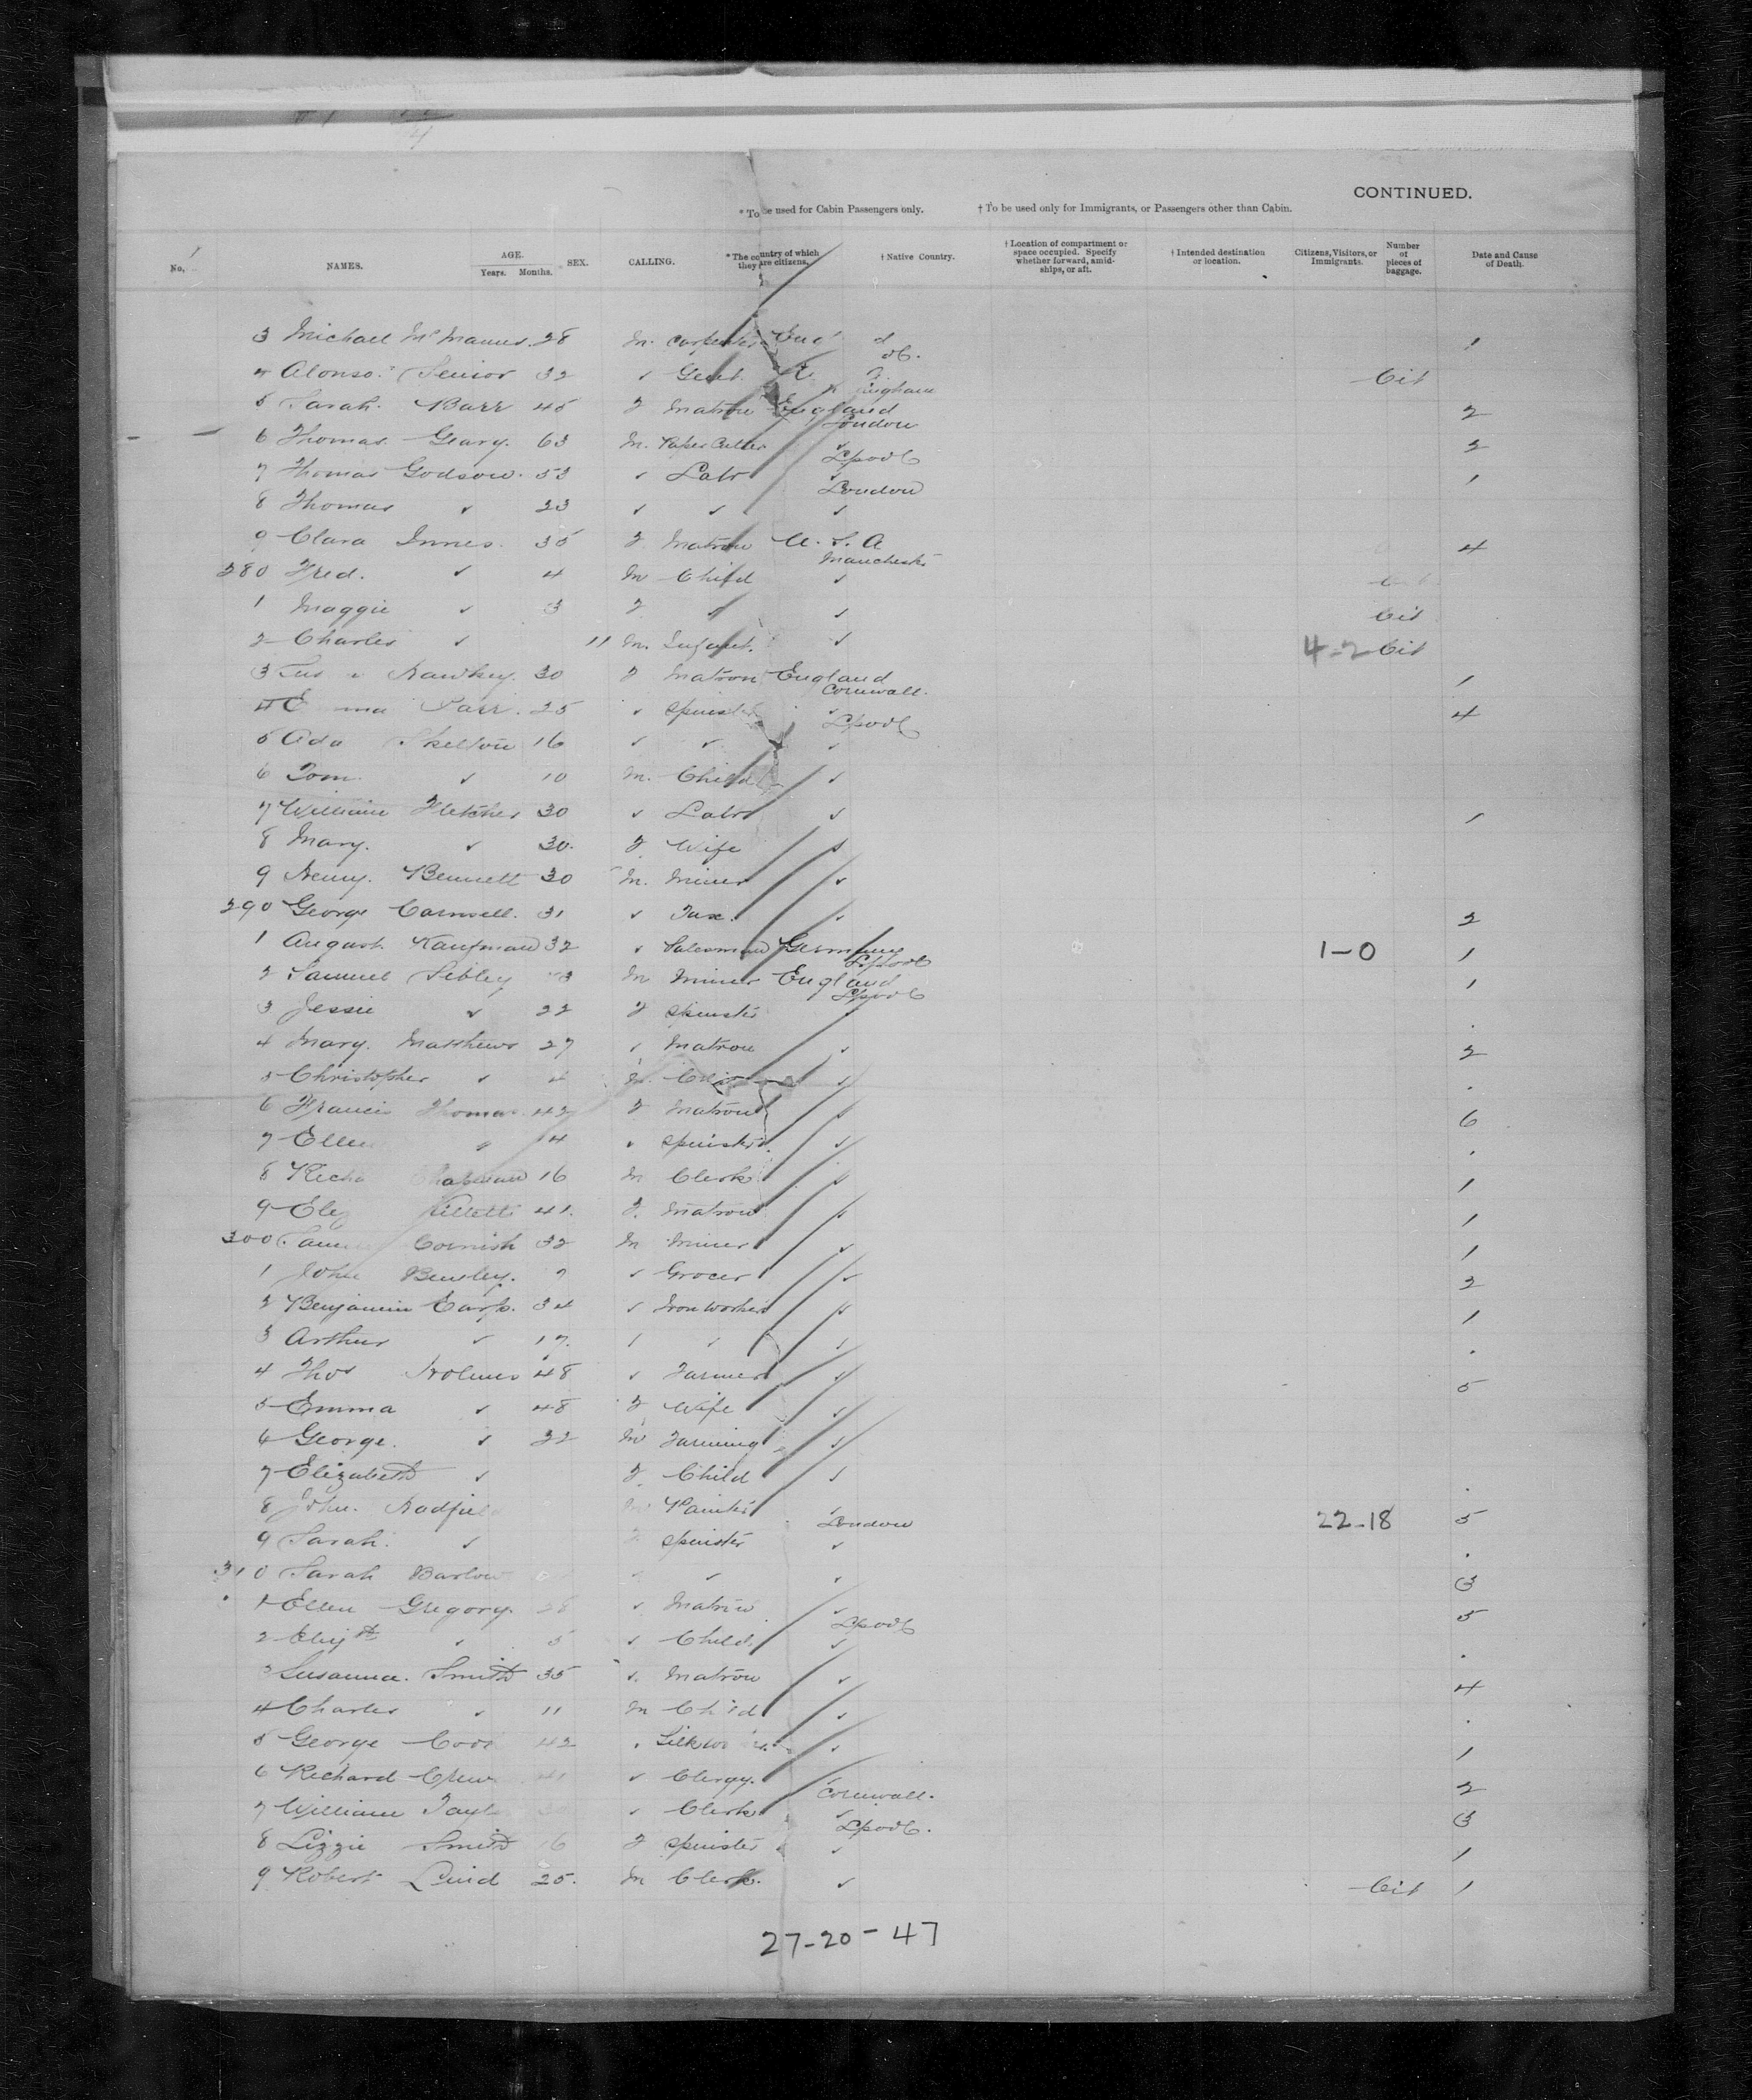 CONTINUED.
* To be used for Cabin Passengers only. † To be used only for Immigrants, or Passengers other than Cabin.
No. NAMES. AGE. Years. Months. SEX. CALLING. * The country of which they are citizens. † Native Country. † Location of compartment or space occupied. Specify whether forward, amidships, or aft. † Intended destination or location. Citizens, Visitors, or Immigrants. Number of pieces of baggage. Date and Cause of Death.
3 Michael McManus 28 M. Carpenter 1
4 Alonso Senior 32 ✓ Gent. Cit
5 Sarah Barr 45 F Matron England London 2
6 Thomas Geary 63 M. Paper Cutter ✓ Lpool 2
7 Thomas Godson 53 ✓ Labr ✓ London 1
8 Thomas ✓ 23 ✓ ✓ ✓
9 Clara Innes 35 F Matron U.S.A Manchester 4
280 Fred. ✓ 4 M Child ✓
1 Maggie ✓ 3 F ✓ ✓ Cit
2 Charles ✓ 11 M. Infant. ✓ 4-2 Cit
3 Hawkey 30 F Matron England Cornwall. 1
4 Parr. 25 ✓ Spinster ✓ Lpool 4
5 Ada Skelton 16 ✓ ✓ ✓
6 Tom ✓ 10 M. Child ✓
7 William Fletcher 30 ✓ Labr ✓ 1
8 Mary. ✓ 30. F. Wife ✓
9 Henry. Bennett 30 M. Miner ✓
290 George 31 ✓ ✓ 2
1 August Kaufman 32 ✓ Salesman Germany Lpool 1-0 1
2 Samuel Sibley M Miner England Lpool 1
3 Jessie ✓ 22 F Spinster ✓ .
4 Mary. Matthews 27 ✓ Matron ✓ 2
5 Christopher ✓ 4 M. ✓ .
6 Francis Thomas 42 F Matron ✓ 6
7 Ellen ✓ 14 ✓ Spinster ✓ .
8 Chapman 16 M Clerk ✓ 1
9 Eliz 41. F. Matron ✓ 1
300 Cornish 32 M Miner ✓ 1
1 John Bensley. ✓ Grocer ✓ 2
2 Benjamin Earp. 34 ✓ Iron worker ✓ 1
3 Arthur ✓ 17. ✓ ✓ ✓ .
4 Thos Holmes 48 ✓ Farmer ✓ 5
5 Emma ✓ 48 F Wife ✓
6 George. ✓ 22 M Farming ✓
7 Elizabeth ✓ F. Child ✓ .
8 John. Hadfield M Painter ✓ London 22-18 5
9 Sarah. ✓ F Spinster ✓ .
310 Sarah Barlow ✓ ✓ ✓ 3
1 Ellen Gregory. 28 ✓ Matron ✓ Lpool 5
2 Elizth ✓ 5 ✓ Child ✓ .
3 Susanna. Smith 35 ✓ Matron ✓ 4
4 Charles ✓ 11 M Child ✓ .
5 George 42 ✓ ✓ 1
6 Richard ✓ Clergy. ✓ Cornwall. 2
7 William ✓ Clerk ✓ Lpool. 3
8 Lizzie Smith 16 F Spinster ✓ 1
9 Robert 25. M Clerk. ✓ Cit 1
27-20-47